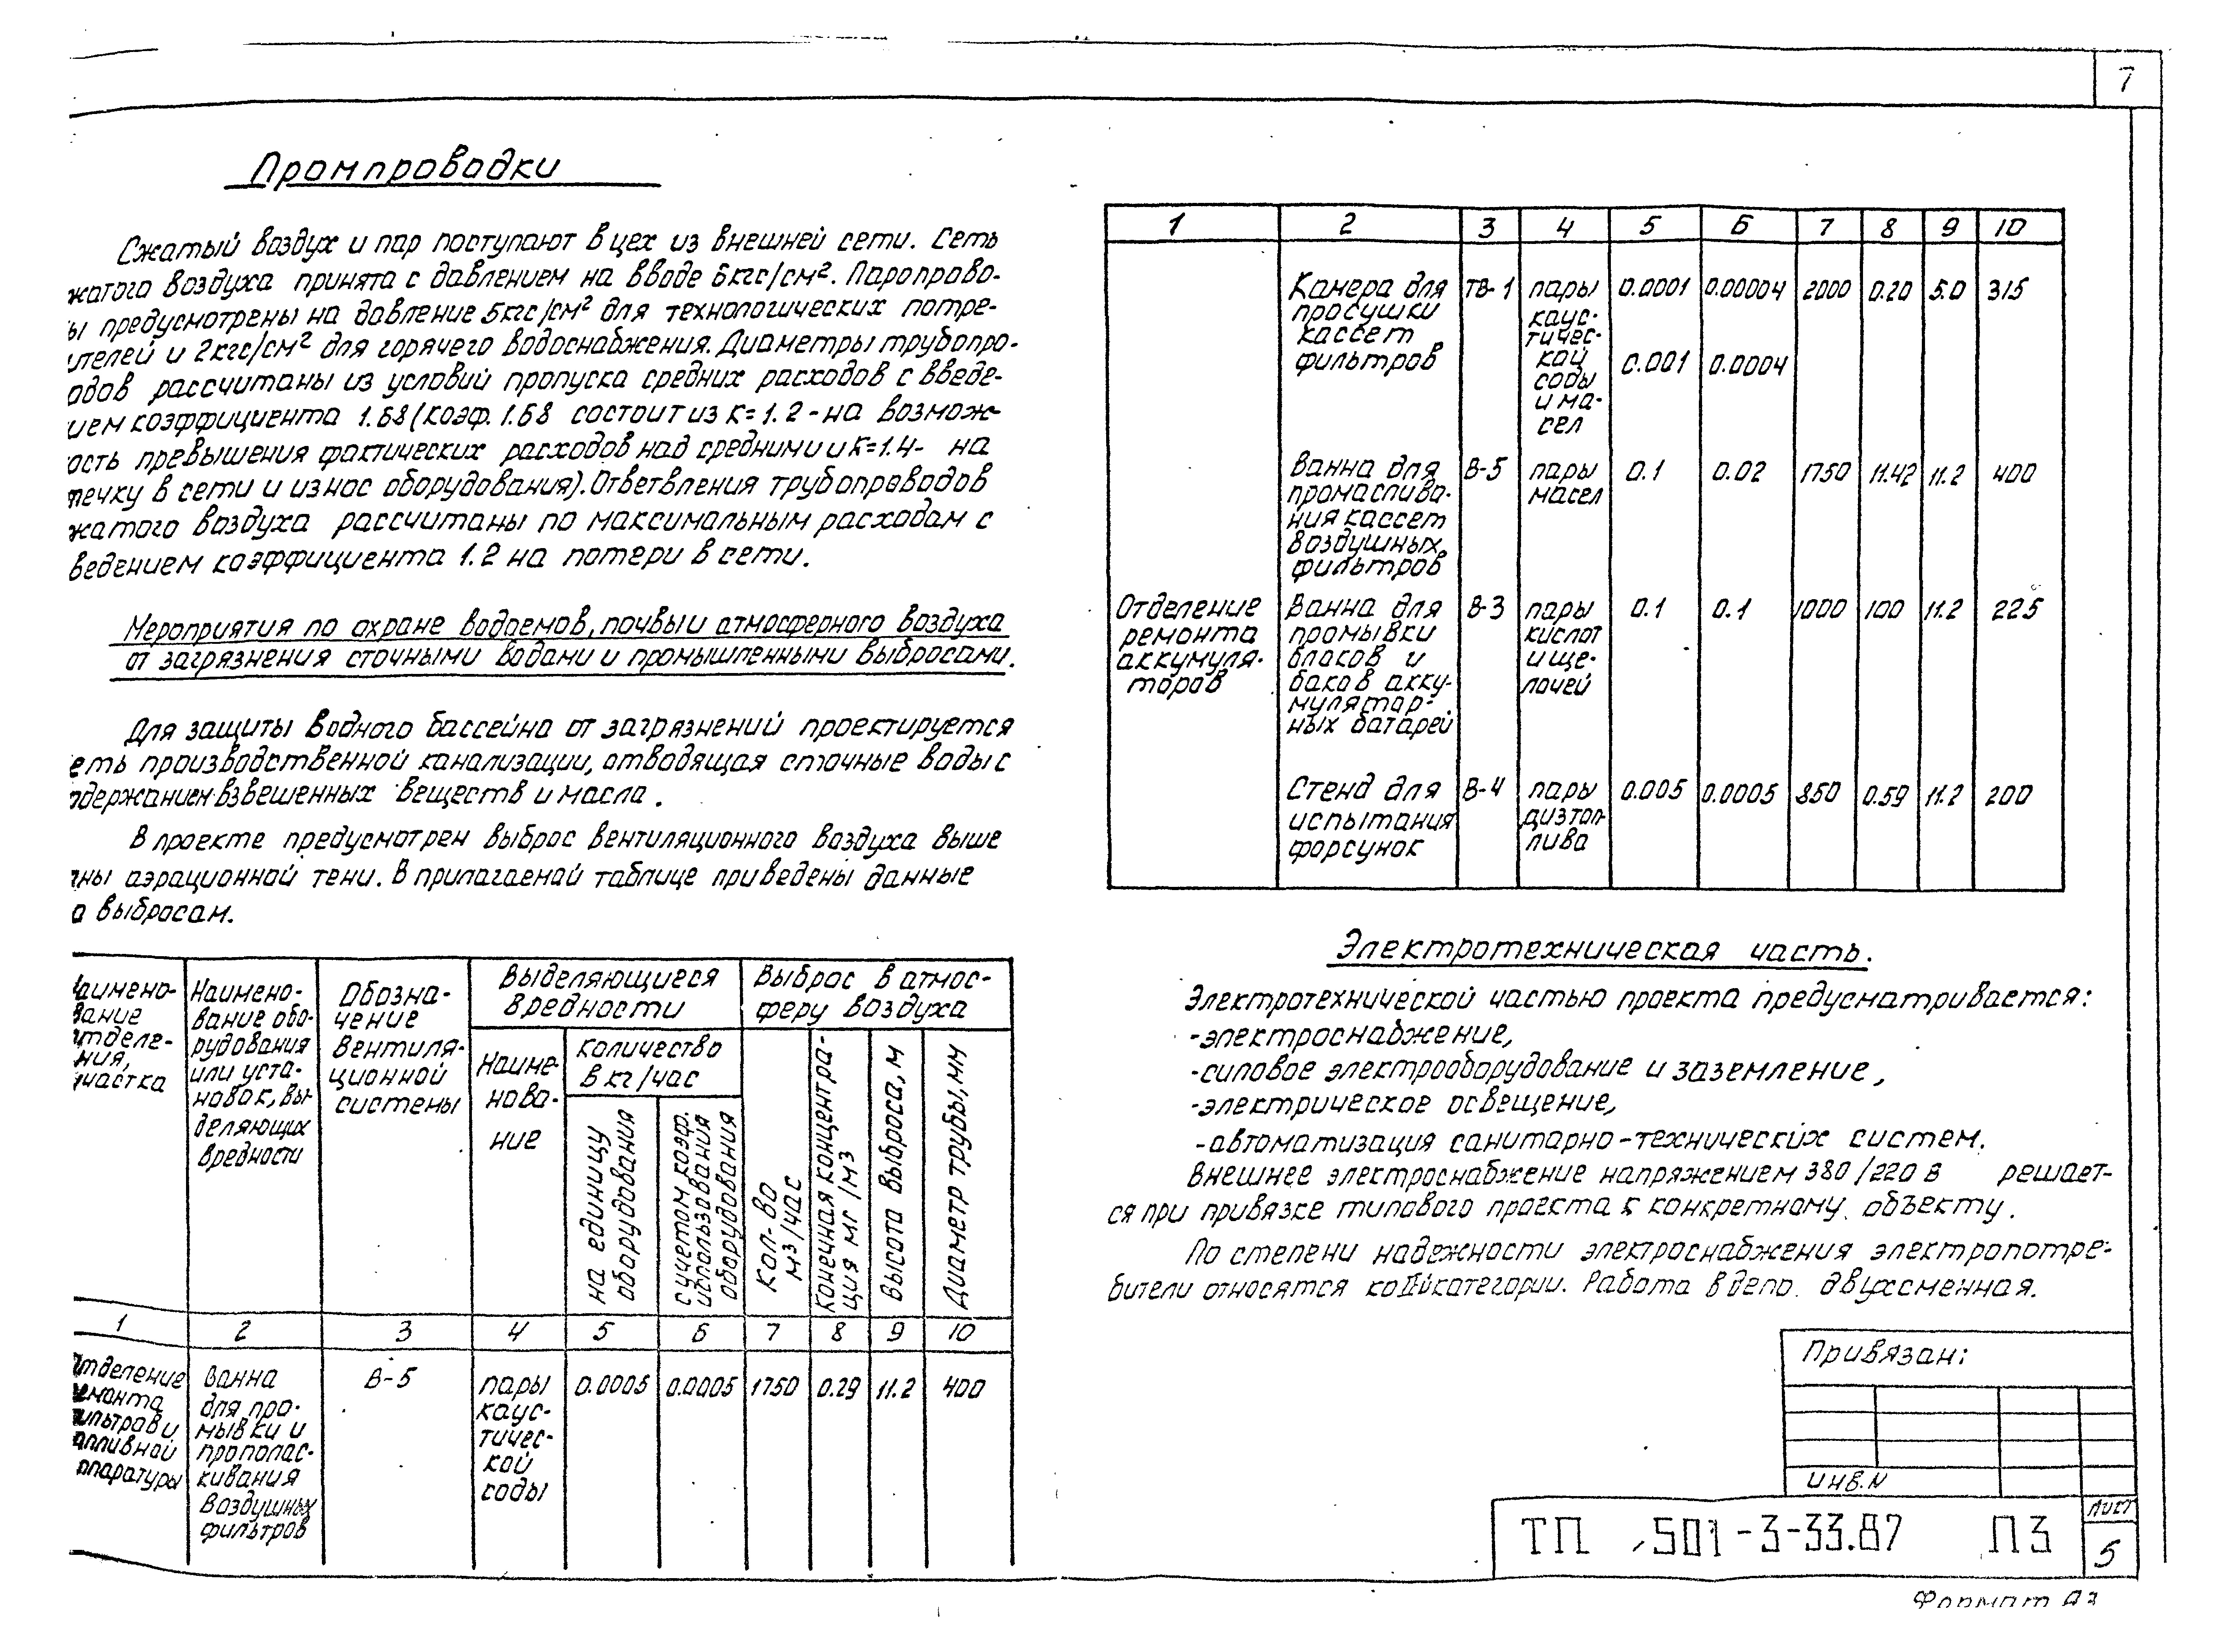 7
Промпроводки
Сжатый воздух и пар поступают в цех из внешней сети. Сеть
жатого воздуха принята с давлением на вводе 6кгс/см². Паропрово-
ы предусмотрены на давление 5кгс/см² для технологических потре-
ителей и 2кгс/см² для горячего водоснабжения. Диаметры трубопро-
одов рассчитаны из условий пропуска средних расходов с введе-
ием коэффициента 1.68 (коэф. 1.68 состоит из к=1.2-на возмож-
ость превышения фактических расходов над средними и к=1.4- на
течку в сети и износ оборудования). Ответвления трубопроводов
жатого воздуха рассчитаны по максимальным расходам с
ведением коэффициента 1.2 на потери в сети.
Мероприятия по охране водоемов, почвы и атмосферного воздуха
от загрязнения сточными водами и промышленными выбросами.
Для защиты водного бассейна от загрязнений проектируется
еть производственной канализации, отводящая сточные воды с
одержанием взвешенных веществ и масла.
В проекте предусмотрен выброс вентиляционного воздуха выше
ны аэрационной тени. В прилагаемой таблице приведены данные
о выбросам.
аимено-
вание
тделе-
ния,
частка
Наимено-
вание обо-
рудования
или уста-
новок, вы-
деляющих
вредности
Обозна-
чение
вентиля-
ционной
системы
Выделяющиеся
вредности
Наиме-
нова-
ние
количество
в кг/час
на единицу
оборудования
с учетом коэф.
использования
оборудования
Выброс в атмос-
феру воздуха
Кол-во
м3/час
конечная концентра-
ция мг/м3
Высота выброса, м
Диаметр трубы, мм
1 2 3 4 5 6 7 8 9 10
тделение
емонта
ильтров и
опливной
ппаратуры
Ванна
для про-
мывки и
прополас-
кивания
воздушных
фильтров
В-5
пары
каус-
тичес-
кой
соды
0.0005 0.0005 1750 0.29 11.2 400
1 2 3 4 5 6 7 8 9 10
Камера для
просушки
кассет
фильтров
ТВ-1
пары
каус-
тичес-
кой
соды
и ма-
сел
0.0001 0.00004 2000 0.20 5.0 315
0.001 0.0004
Ванна для
промаслива-
ния кассет
воздушных
фильтров
В-5
пары
масел
0.1 0.02 1750 11.42 11.2 400
Отделение
ремонта
аккумуля-
торов
Ванна для
промывки
блоков и
баков акку-
мулятор-
ных батарей
В-3
пары
кислот
и ще-
лочей
0.1 0.1 1000 100 11.2 225
Стенд для
испытания
форсунок
В-4
пары
дизтоп-
лива
0.005 0.0005 850 0.59 11.2 200
Электротехническая часть.
Электротехнической частью проекта предусматривается:
-электроснабжение,
-силовое электрооборудование и заземление,
-электрическое освещение,
-автоматизация санитарно-технических систем.
Внешнее электроснабжение напряжением 380/220 в решает-
ся при привязке типового проекта к конкретному объекту.
По степени надежности электроснабжения электропотре-
бители относятся ко II категории. Работа в депо двухсменная.
Привязан:
инв.N
ТП 501-3-33.87 ПЗ
Лист
5
Формат А3